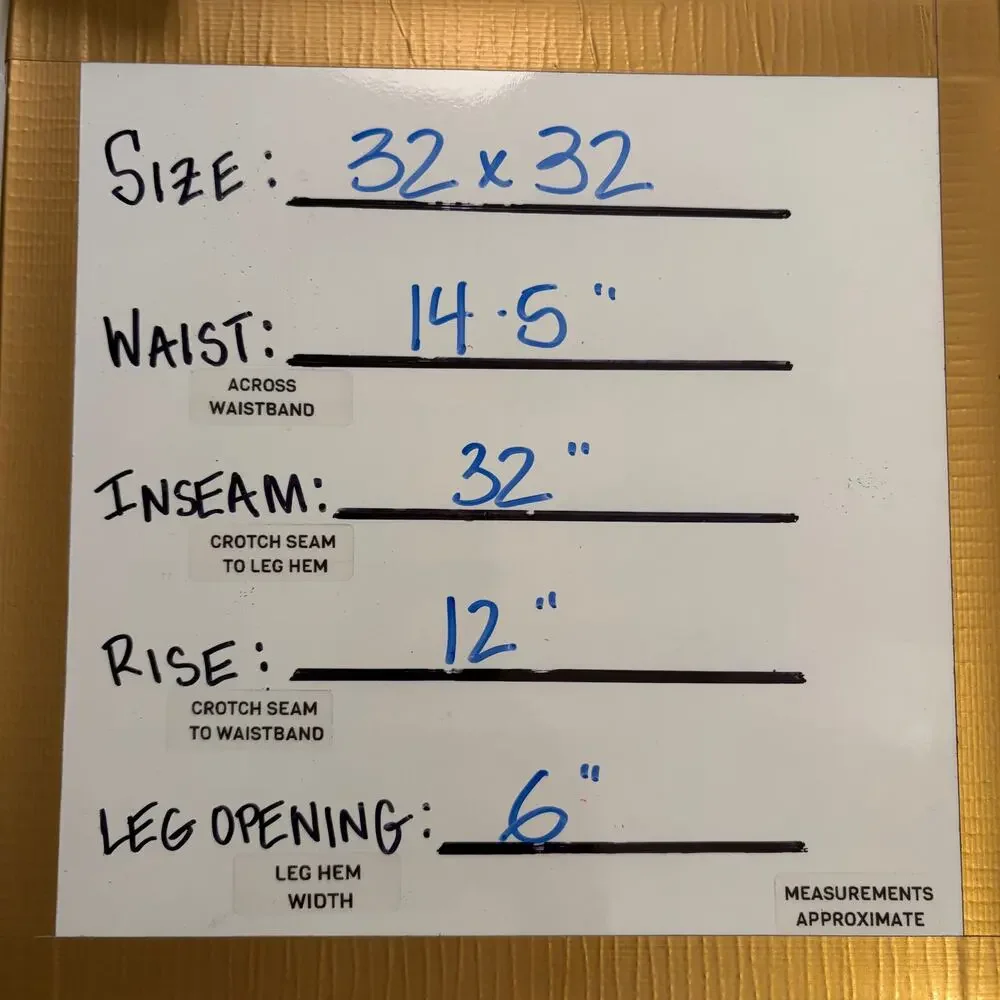 SIZE: 32 x 32
WAIST: 14.5"
ACROSS
WAISTBAND
INSEAM: 32"
CROTCH SEAM
TO LEG HEM
RISE: 12"
CROTCH SEAM
TO WAISTBAND
LEG OPENING: 6"
LEG HEM
WIDTH
MEASUREMENTS
APPROXIMATE